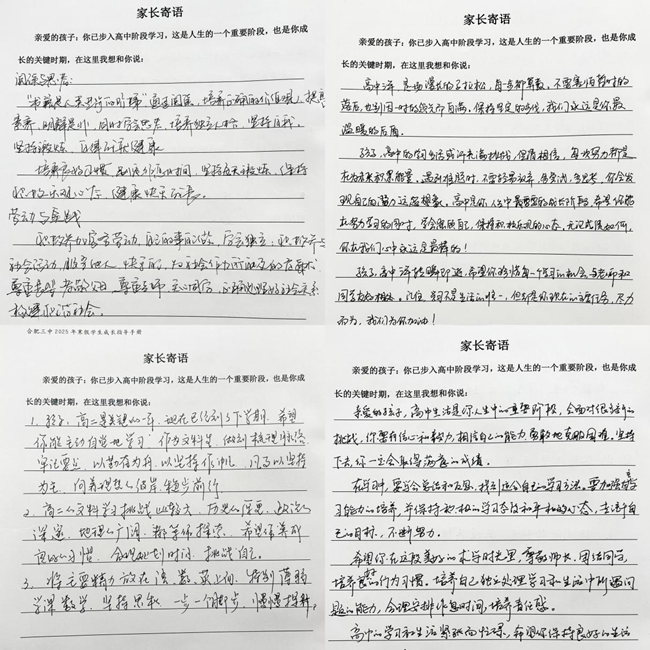 家长寄语
亲爱的孩子：你已步入高中阶段学习，这是人生的一个重要阶段，也是你成
长的关键时期，在这里我想和你说：
阅读与思考：
"书籍是人类进步的阶梯"通过阅读，培养正确的价值观，提高
素养，明辨是非，同时学会思考，培养独立人格，坚持自我，
坚持锻炼，自律
培养良好习惯，坚持每天锻炼，保持
积极乐观心态，健康快乐成长。
劳动与实践
积极参加家务劳动，自己的事自己做，学会独立；积极参与
社会活动，服务他人，快乐自己，为社会作力所能及的
尊重长辈，孝敬父母，尊重老师，正确处理好社会关系
构建和谐社会。
合肥三中2025年寒假学生成长指导手册
家长寄语
亲爱的孩子：你已步入高中阶段学习，这是人生的一个重要阶段，也是你成
长的关键时期，在这里我想和你说：
高中三年是场漫长的马拉松，每一步都算数，不需要因暂时的
落后，也别因一时的领先而自满。保持坚定的步伐，我们永远是你最
温暖的后盾。
孩子，高中的学习生活或许充满挑战，但请相信，每次努力都是
在为未来积累能量。遇到难题时，不要轻易放弃，多尝试，多思考，你会发
现自己的潜力远超想象。高中是你人生中最重要的成长阶段，希望你能
在努力学习的同时，学会照顾自己，保持积极乐观的心态，无论成绩如何，
你在我们心中永远是最棒的！
孩子，高中三年转瞬即逝，希望你珍惜每一个学习的机会，与老师和
同学友好相处。记住，学习不是生活的唯一，但却是你现在的主要任务，尽力
而为，我们为你加油！
家长寄语
亲爱的孩子：你已步入高中阶段学习，这是人生的一个重要阶段，也是你成
长的关键时期，在这里我想和你说：
1、孩子，高二是关键的一年，现在已经到了下学期，希望
你能主动自觉地学习，作为文科生，做到梳理脉络，
牢记要点，以勤奋为舟，以坚持作帆，
为主，向着理想的彼岸，稳步前行
2、高二的文科学习挑战比较大，历史的厚重，政治的
深邃，地理的广阔，都等你探索，希望你养成
良好的习惯，合理规划时间，挑战自己。
3、将主要精力放在语、数、英上面，特别薄弱
学课数学，坚持思考，一步一个脚步，慢慢推移，
家长寄语
亲爱的孩子：你已步入高中阶段学习，这是人生的一个重要阶段，也是你成
长的关键时期，在这里我想和你说：
亲爱的孩子，高中生活是你人生中的重要阶段，会面对很多新的
挑战，你要有信心和努力，相信自己的能力，勇敢地克服困难。坚持
下去，你一定会取得满意的成绩。
在学习中，要学会总结和反思，找到适合自己的学习方法。要加强自主学
习能力的培养，并保持积极的学习态度和平和的心态，去满自
己的目标，不断努力。
希望你在这段美好的高中时光里，尊敬师长，团结同学，
培养良好的行为习惯。培养自己独立处理学习和生活中所遇问
题的能力，合理安排作息时间，培养责任感。
高中的学习和生活紧张而忙碌，希望你保持良好的生活